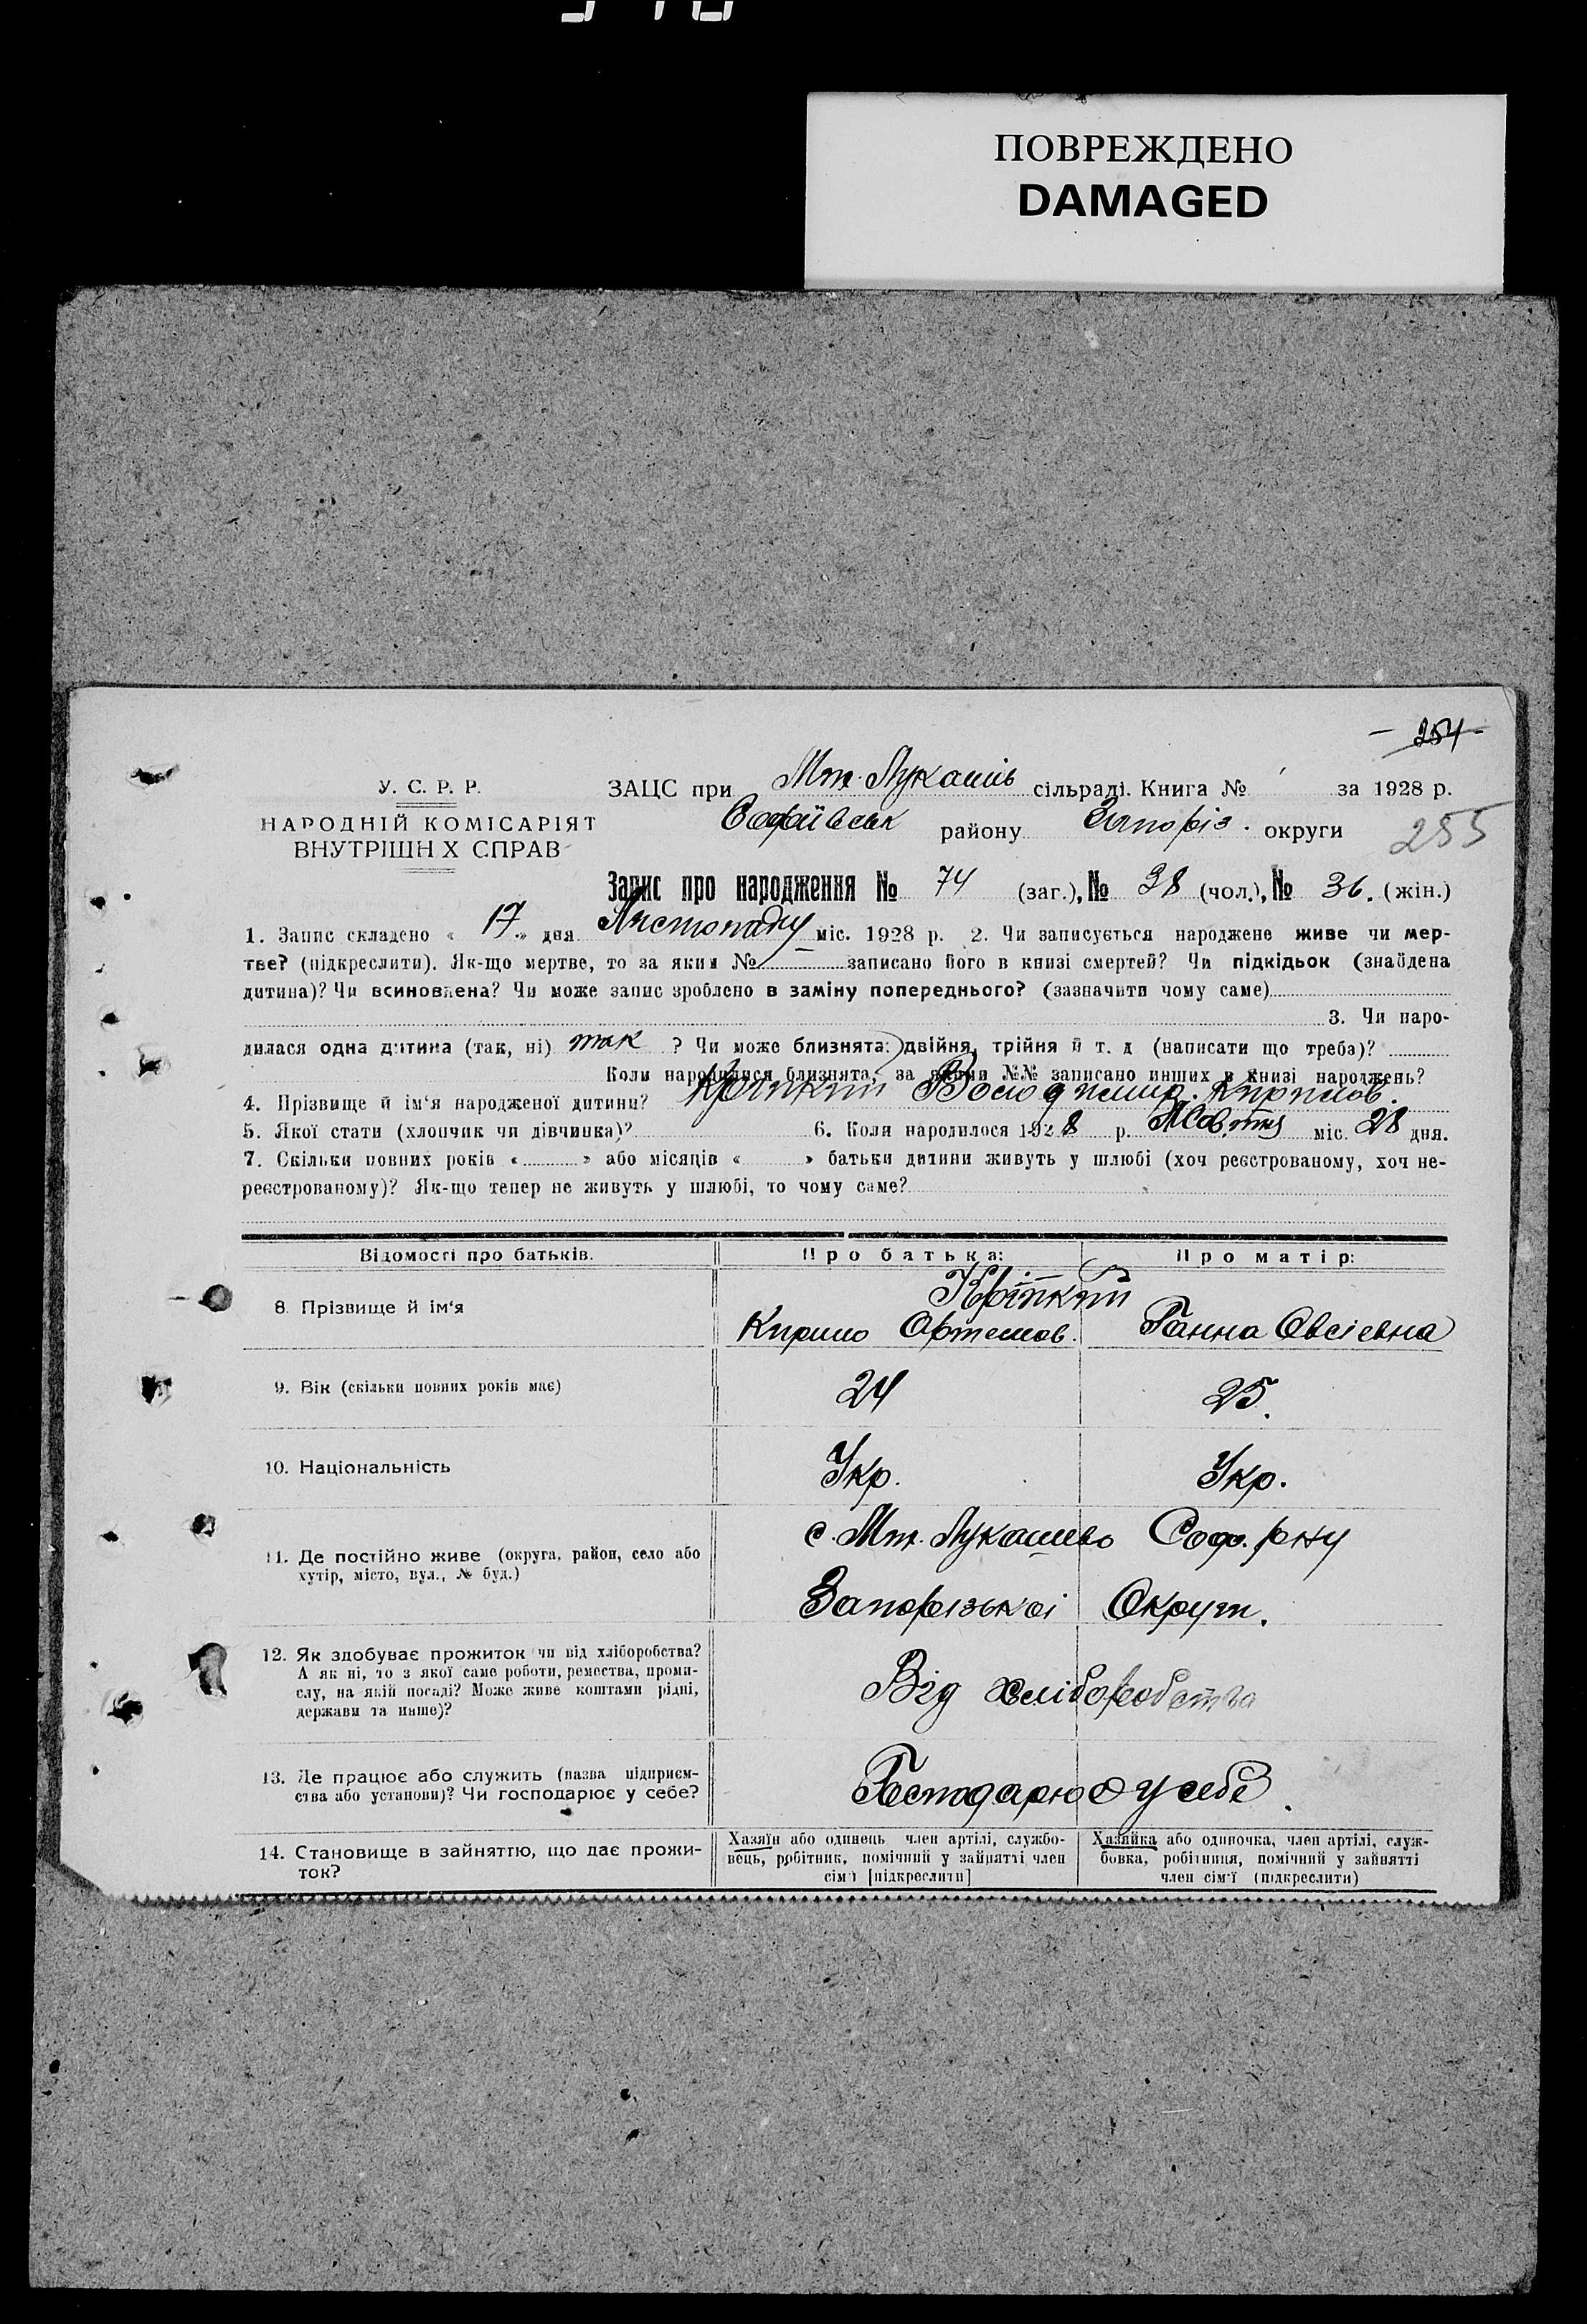 ПОВРЕЖДЕНО
DAMAGED
- 254 -
У. С. Р. Р.
НАРОДНІЙ КОМІСАРІЯТ
ВНУТРІШН Х СПРАВ
ЗАЦС при Мт. Лукашів сільраді. Книга № за 1928 р.
Софіївськ району Запоріз. округи
255
Запис про народження № 74 (заг.), № 38 (чол.), № 36. (жін.)
1. Запис складено « 17 » дня Листопаду міс. 1928 р. 2. Чи записується народжене живе чи мер-
тве? (підкреслити). Як-що мертве, то за яким № — записано його в книзі смертей? Чи підкідьок (знайдена
дитина)? Чи всиновлена? Чи може запис зроблено в заміну попереднього? (зазначити чому саме)
3. Чи наро-
дилася одна дитина (так, ні) так ? Чи може близнята: двійня, трійня й т. д (написати що треба)?
Коли народилися близнята, за якими №№ записано инших в книзі народжень?
4. Прізвище й ім'я народженої дитини? Кріпкий Володимир. Кирилов.
5. Якої стати (хлопчик чи дівчинка)? 6. Коли народилося 1928 р. Жовтня міс. 28 дня.
7. Скільки повних років « » або місяців « » батьки дитини живуть у шлюбі (хоч реєстрованому, хоч не-
реєстрованому)? Як-що тепер не живуть у шлюбі, то чому саме?
Відомості про батьків. Про батька: Про матір:
Кріпкий
8. Прізвище й ім'я Кирило Артемов. Ганна Овсієвна
9. Вік (скільки повних років має) 24 25.
10. Національність Укр. Укр.
с. Мт. Лукашево Соф. р-ну
11. Де постійно живе (округа, район, село або
хутір, місто, вул., № буд.)
Запорізької Округи.
12. Як здобуває прожиток чи від хліборобства?
А як ні, то з якої саме роботи, ремества, проми-
слу, на якій посаді? Може живе коштами рідні,
держави та инше)?
Від хліборобства
13. Де працює або служить (назва підприєм-
ства або установи)? Чи господарює у себе?
Господарює у себе.
14. Становище в зайняттю, що дає прожи-
ток?
Хазяїн або одинець член артілі, службо-
вець, робітник, помічний у зайнятті член
сім'ї [підкреслити]
Хазяйка або одиночка, член артілі, служ-
бовка, робітниця, помічний у зайнятті
член сім'ї (підкреслити)